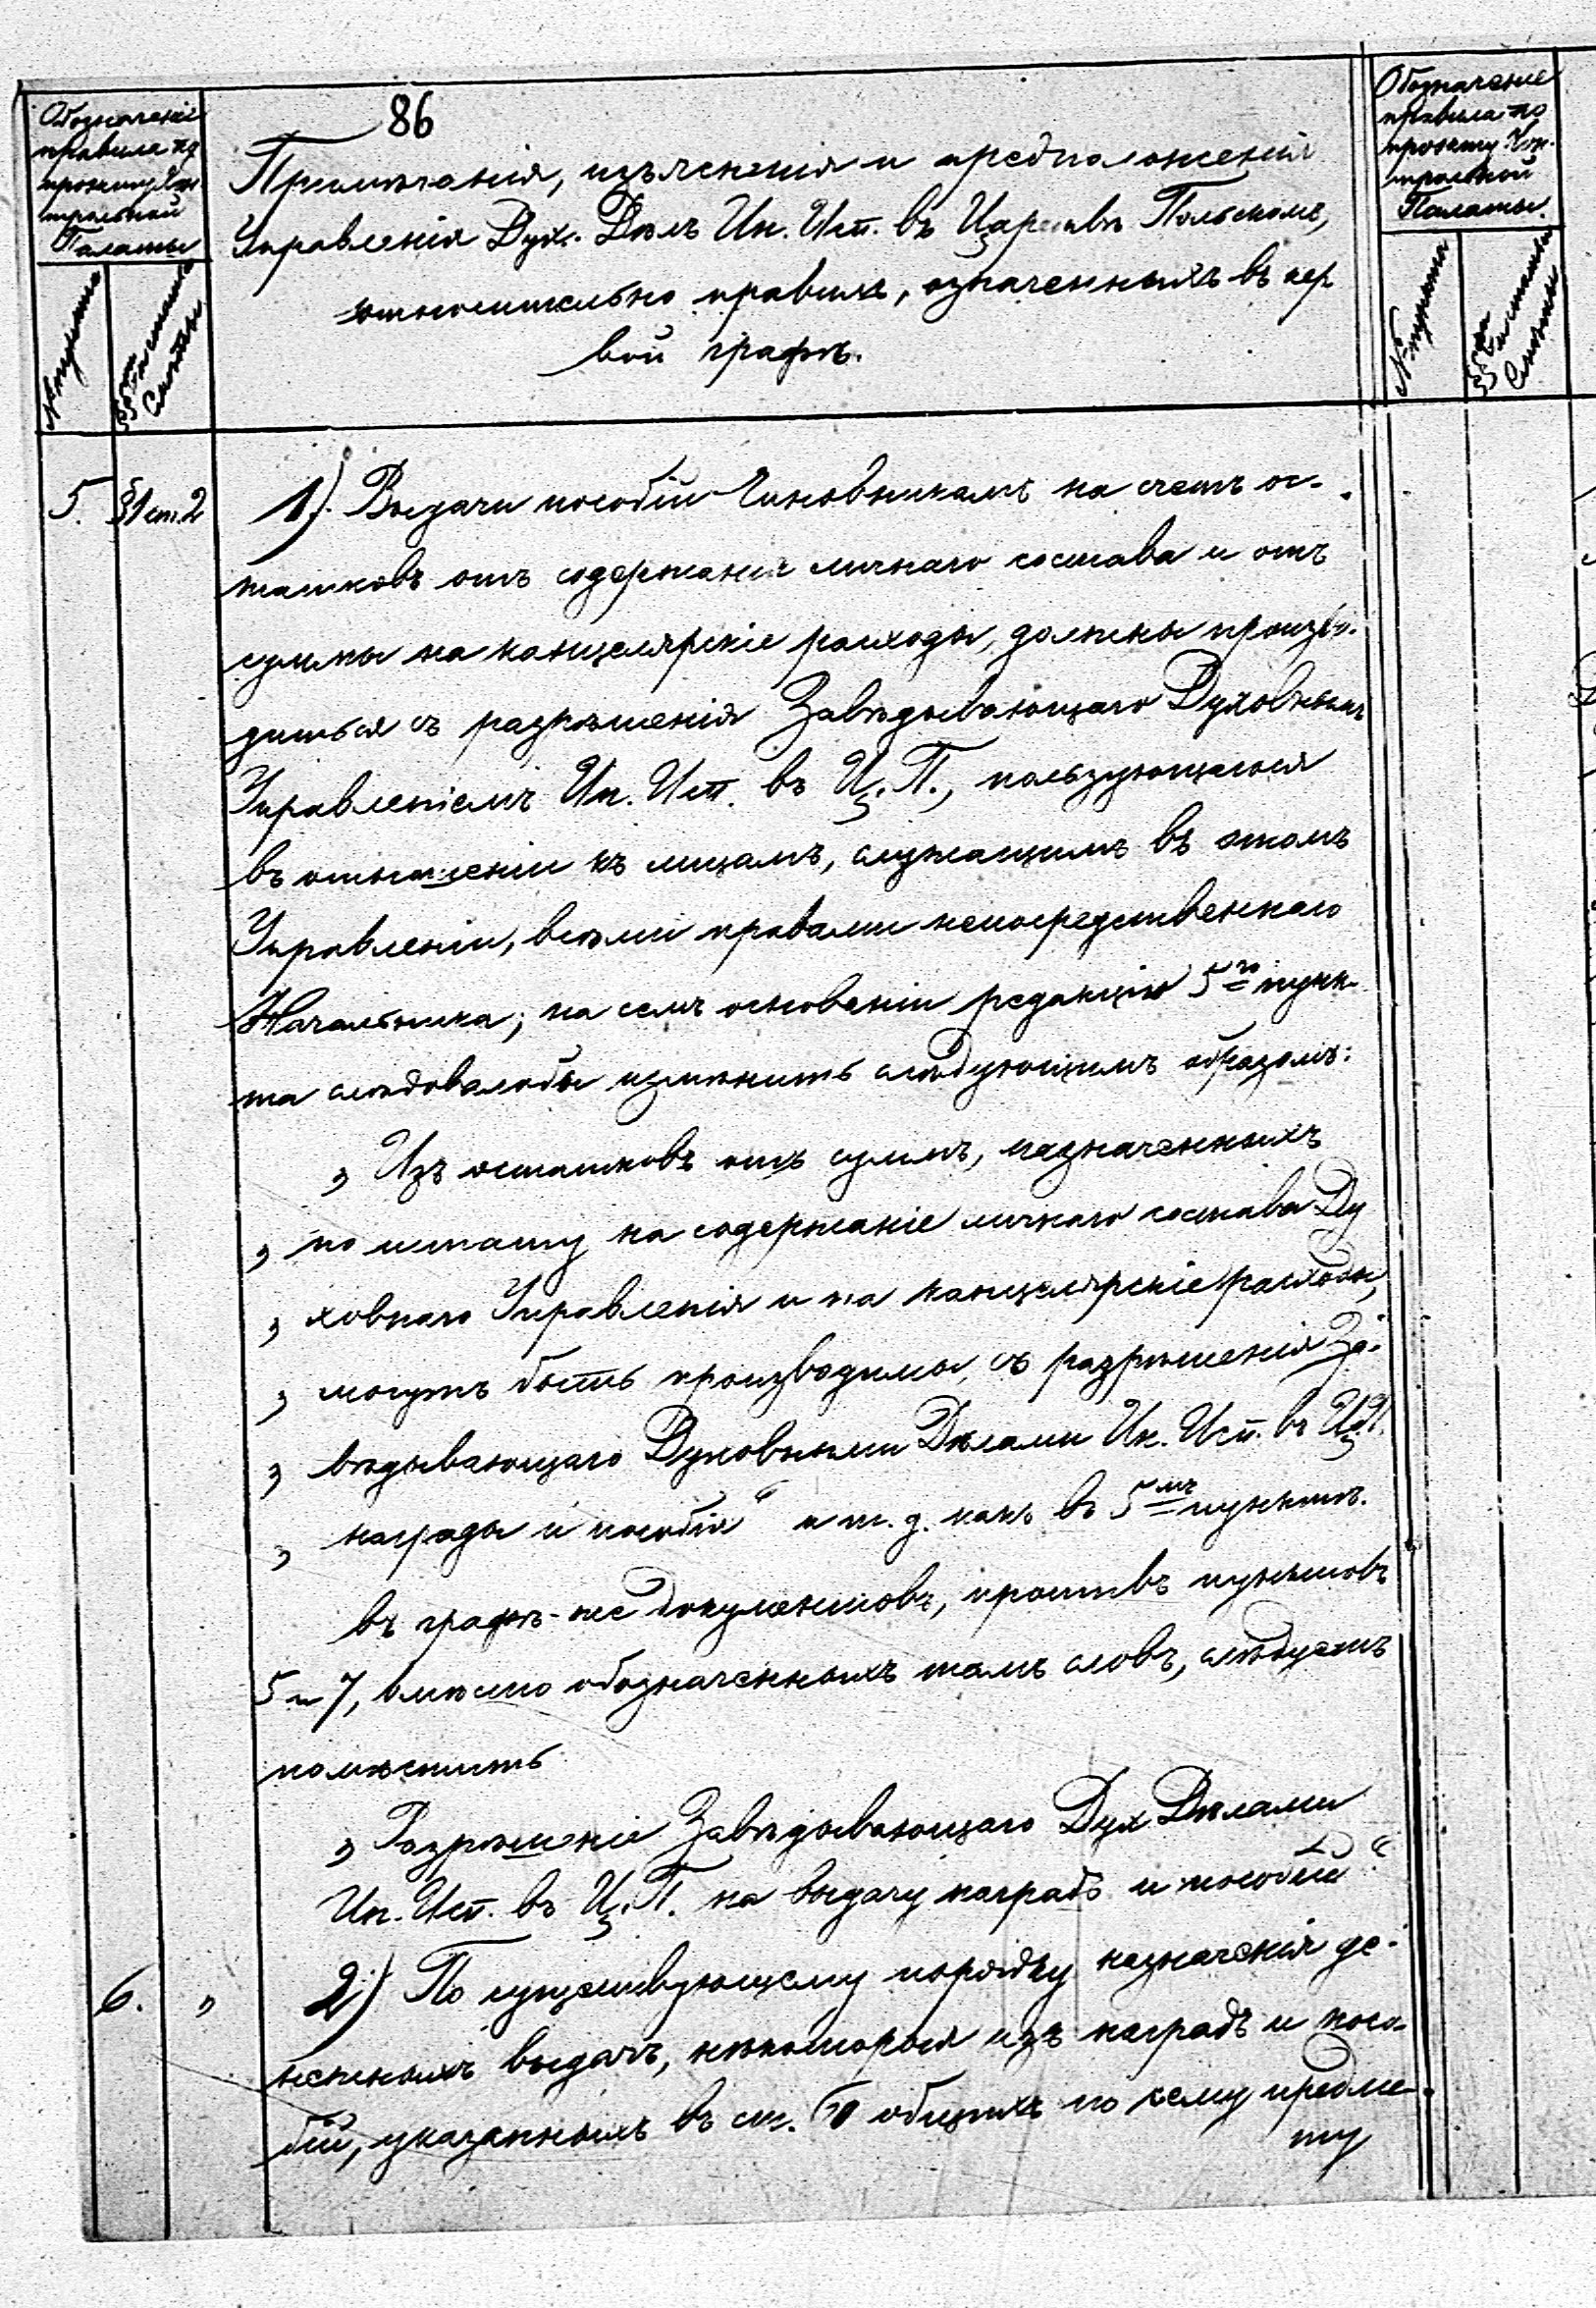 86
Обозначеніе
правила по
проекту Кон
трольной
Палаты
№ пункта
§§ и статьи
Смѣты
Примѣчанія, изъясненія и предположенія
Управленія Дух. Дѣлъ Ин. Исп. въ Царствѣ Польскомъ,
относительно правилъ, означенныхъ въ пер
вой графѣ.
Обозначеніе
правила по
проекту Кон-
трольной
Палаты.
№ пункта
§§ и статьи
Смѣты
5. §1 ст. 2
1). Выдачи пособій Чиновникамъ на счетъ ос-
татковъ отъ содержанія личнаго состава и отъ
суммы на канцелярскіе расходы, должны произво-
диться съ разрѣшенія Завѣдывающаго Духовнымъ
Управленіемъ Ин. Исп. въ Ц. П., пользующагося
въ отношеніи къ лицамъ, служащимъ въ этомъ
Управленіи, всѣми правами непосредственнаго
Начальника; на семъ основаніи редакцію 5го пунк-
та слѣдовалобы измѣнить слѣдующимъ образомъ:
„ Изъ остатковъ отъ суммъ, назначенныхъ
„ по штату на содержаніе личнаго состава Ду
„ ховнаго Управленія и на канцелярскіе расходы,
„ могутъ быть производимы, съ разрѣшенія За-
„ вѣдывающаго Духовными Дѣлами Ин. Исп. въ Ц. П.
„ награды и пособія“ и т. д. какъ въ 5мъ пунктѣ.
въ графѣ-же документовъ, противъ пунктовъ
5 и 7, вмѣсто обозначенныхъ тамъ словъ, слѣдуетъ
помѣстить
„ Разрѣшеніе Завѣдывающаго Дух Дѣлами
Ин. Исп. въ Ц. П. на выдачу наградъ и пособій“
6. „
2) По существующему порядку назначенія де-
нежныхъ выдачъ, нѣкоторыя изъ наградъ и посо-
бій, указанныхъ въ ст. общихъ по сему предме-
ту